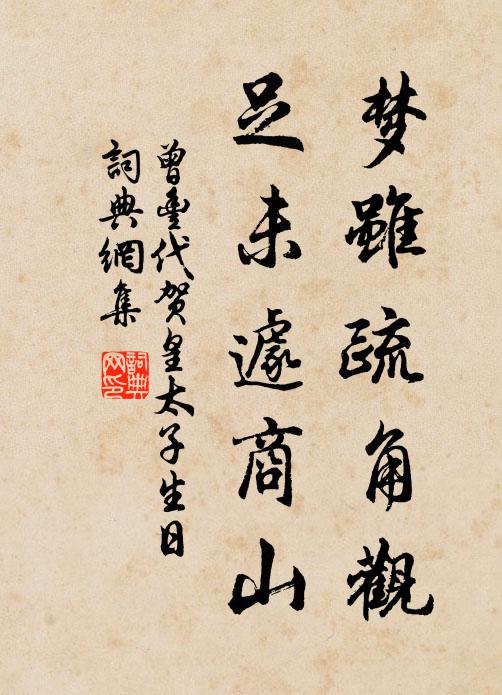 梦雖疏角觀
足未遽商山
曾豊代贺皇太子生日
詞典網集
詞典网印